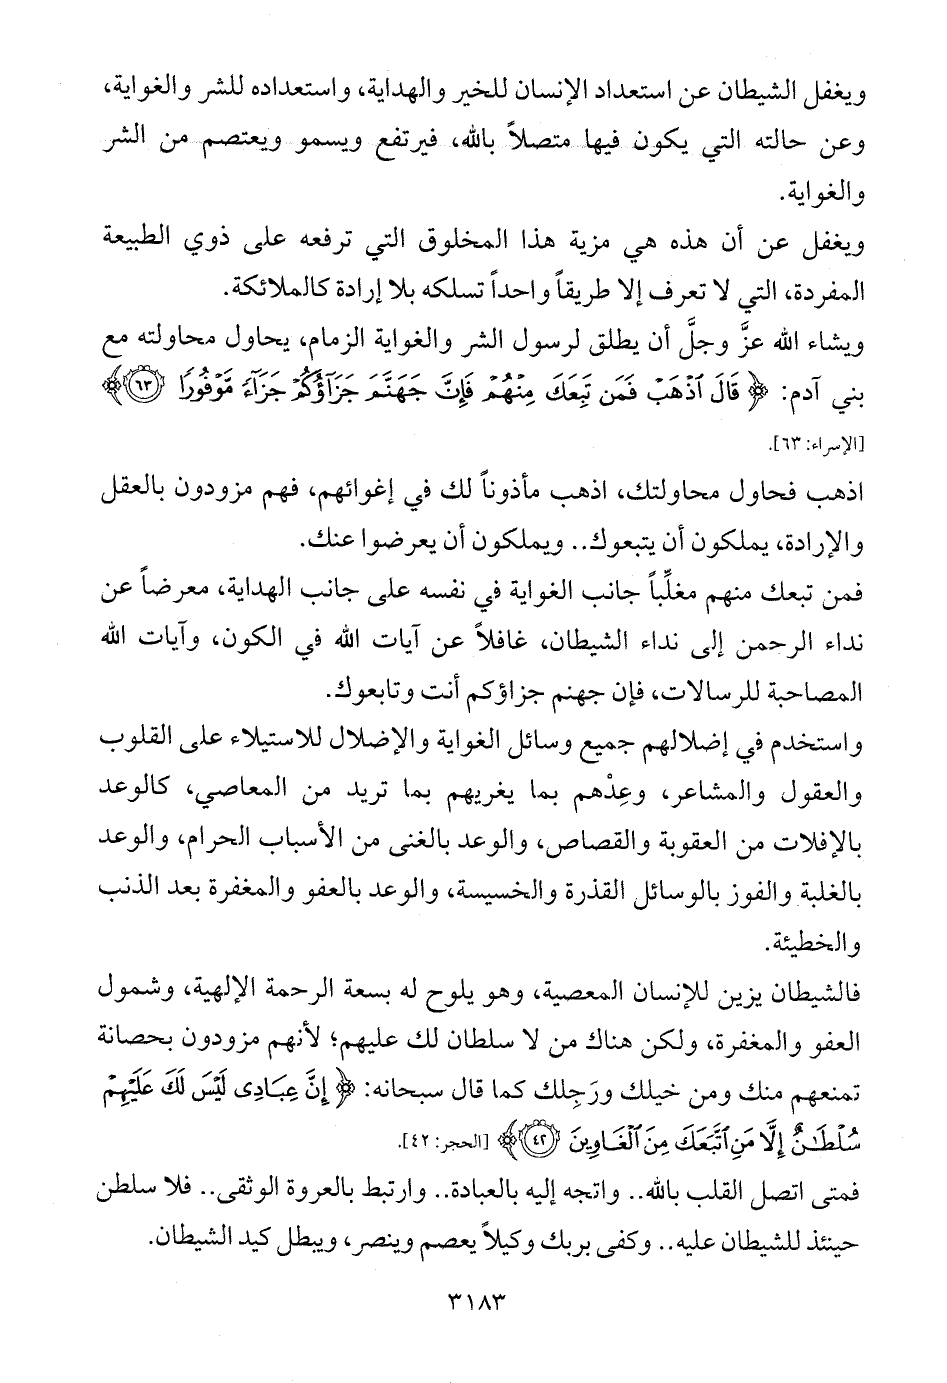 ويغفل الشيطان عن استعداد الإنسان للخير والهداية، واستعداده للشر والغواية،
وعن حالته التي يكون فيها متصلاً بالله، فيرتفع ويسمو ويعتصم من الشر
والغواية.
ويغفل عن أن هذه هي مزية هذا المخلوق التي ترفعه على ذوي الطبيعة
المفردة، التي لا تعرف إلا طريقاً واحداً تسلكه بلا إرادة كالملائكة.
ويشاء الله عزَّ وجلَّ أن يطلق لرسول الشر والغواية الزمام، يحاول محاولته مع
بني آدم: ﴿قَالَ ٱذْهَبْ فَمَن تَبِعَكَ مِنْهُمْ فَإِنَّ جَهَنَّمَ جَزَآؤُكُمْ جَزَآءً مَّوْفُورًا ۝٦٣﴾
[الإسراء: ٦٣].
اذهب فحاول محاولتك، اذهب مأذوناً لك في إغوائهم، فهم مزودون بالعقل
والإرادة، يملكون أن يتبعوك.. ويملكون أن يعرضوا عنك.
فمن تبعك منهم مغلِّباً جانب الغواية في نفسه على جانب الهداية، معرضاً عن
نداء الرحمن إلى نداء الشيطان، غافلاً عن آيات الله في الكون، وآيات الله
المصاحبة للرسالات، فإن جهنم جزاؤكم أنت وتابعوك.
واستخدم في إضلالهم جميع وسائل الغواية والإضلال للاستيلاء على القلوب
والعقول والمشاعر، وعِدْهم بما يغريهم بما تريد من المعاصي، كالوعد
بالإفلات من العقوبة والقصاص، والوعد بالغنى من الأسباب الحرام، والوعد
بالغلبة والفوز بالوسائل القذرة والخسيسة، والوعد بالعفو والمغفرة بعد الذنب
والخطيئة.
فالشيطان يزين للإنسان المعصية، وهو يلوح له بسعة الرحمة الإلهية، وشمول
العفو والمغفرة، ولكن هناك من لا سلطان لك عليهم؛ لأنهم مزودون بحصانة
تمنعهم منك ومن خيلك ورَجِلك كما قال سبحانه: ﴿إِنَّ عِبَادِى لَيْسَ لَكَ عَلَيْهِمْ
سُلْطَـٰنٌ إِلَّا مَنِ ٱتَّبَعَكَ مِنَ ٱلْغَاوِينَ ۝٤٢﴾ [الحجر: ٤٢].
فمتى اتصل القلب بالله.. واتجه إليه بالعبادة.. وارتبط بالعروة الوثقى.. فلا سلطن
حينئذ للشيطان عليه.. وكفى بربك وكيلاً يعصم وينصر، ويبطل كيد الشيطان.
٣١٨٣